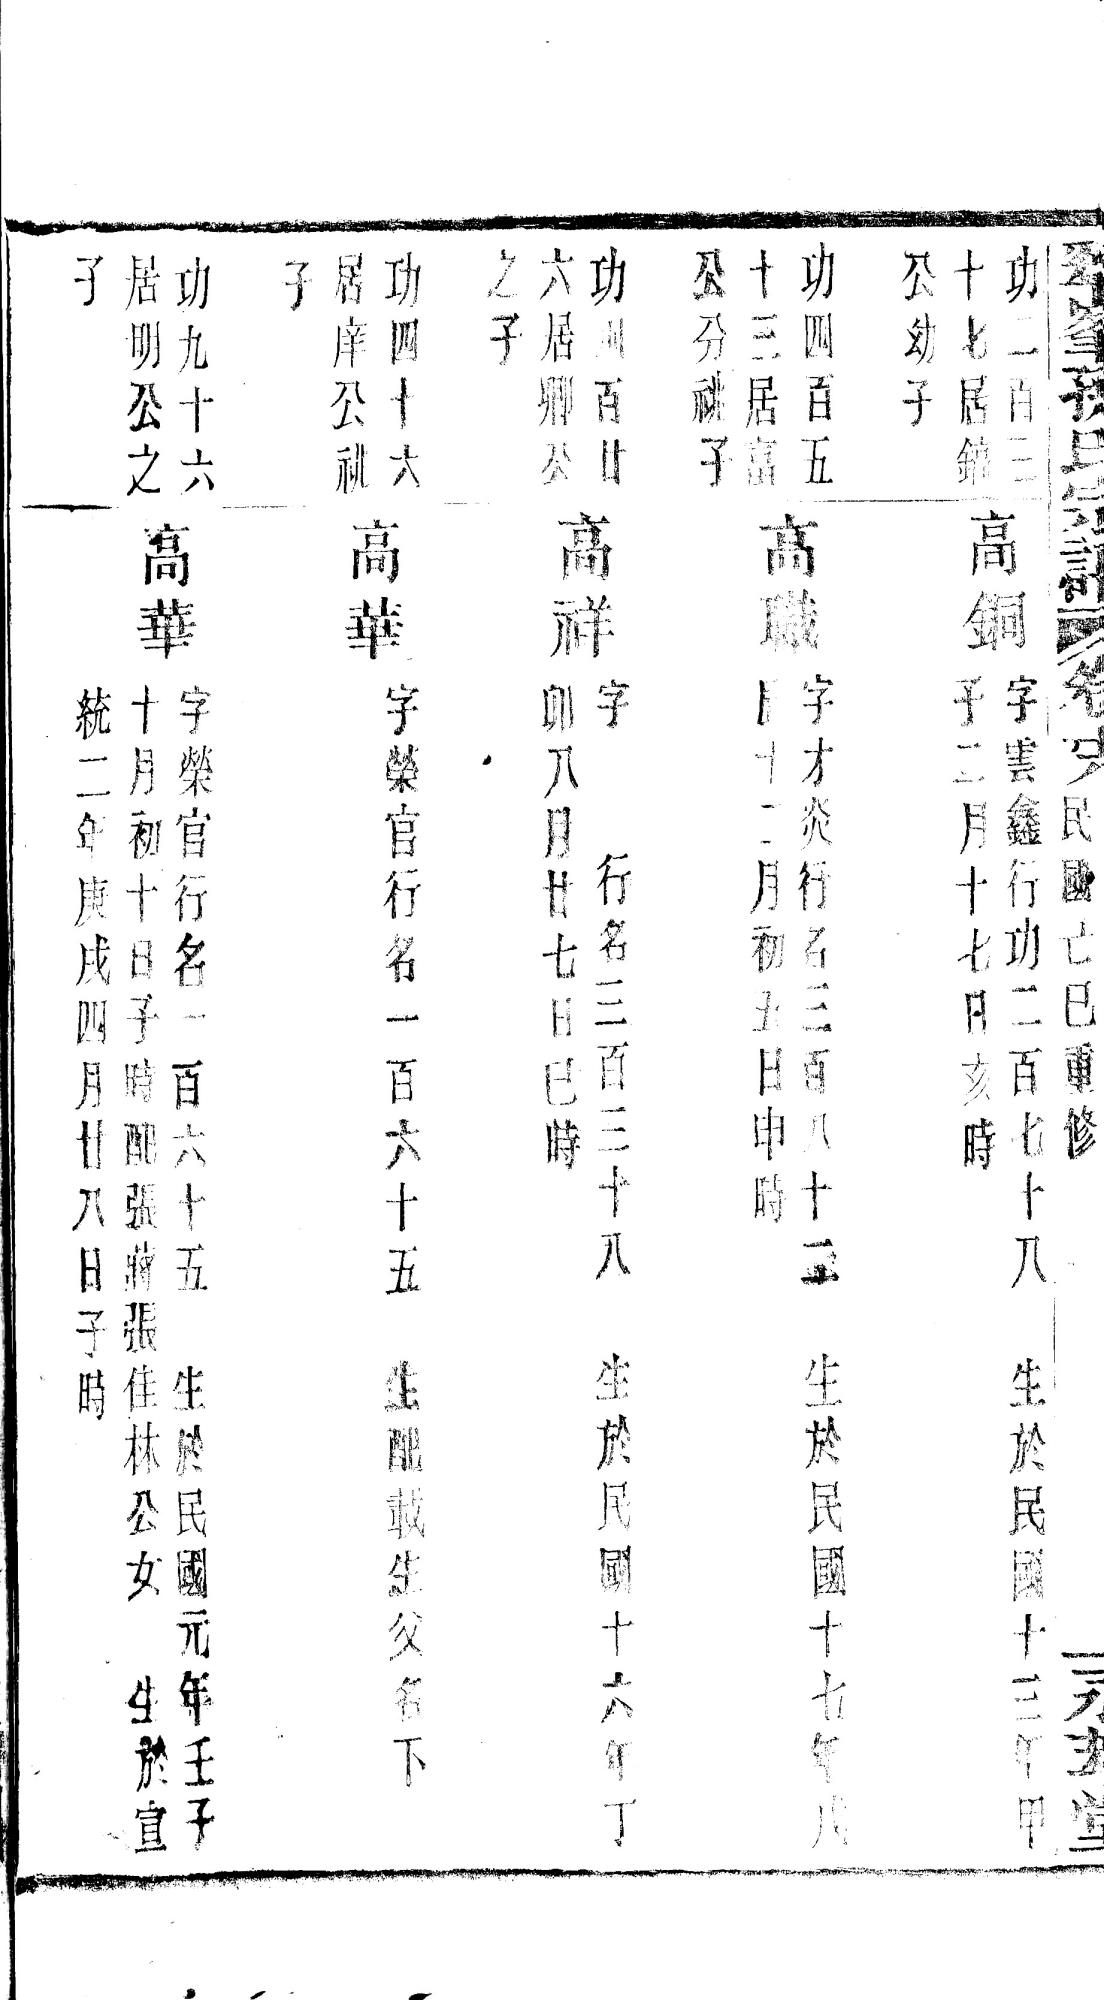 氏宗譜
卷
民國亡巳重修
堂
功二百三
十七居錦
公幼子
高銅
字雲鑫行功二百七十八 生於民國十三年甲
子二月十七日亥時
功四百五
十三居富
公分祧子
高職
字才炎行名三百八十三 生於民國十七年戊
十二月初五日申時
功 百廿
六居卿公
之子
高祥
字 行名三百三十八 生於民國十六年丁
卯八月廿七日巳時
功四十六
居庠公祧
子
高華
字榮官行名一百六十五 生配載生父名下
功九十六
居明公之
子
高華
字榮官行名一百六十五 生於民國元年壬子
十月初十日子時配張蔣張佳林公女 生於宣
統二年庚戌四月廿八日子時